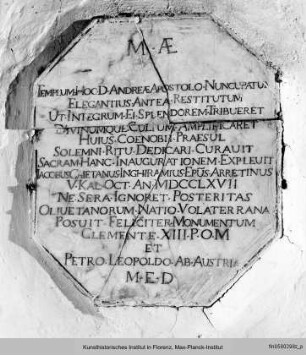 M·Æ
TEMPLUM·HOC·D·ANDREÆ·APOSTOLO·NUNCUPATUM
ELEGANTIUS·ANTEA·RESTITUTUM
UT·INTEGRUM·EI·SPLENDOREM·TRIBUERET
DIVINUMQUE·CULTUM·AMPLIFICARET
HUIUS·COENOBII·PRAESUL
SOLEMNI·RITU·DEDICARI·CURAUIT
SACRAM·HANC·INAUGURATIONEM·EXPLEUIT
IACOBUS·GAETANUS·INGHIRAMIUS·EPUS·ARRETINUS
V·KAL·OCT·AN·MDCCLXVII
NE·SERA·IGNORET·POSTERITAS
OLIUETANORUM·NATIO·VOLATERRANA
POSUIT·FELICITER·MONUMENTUM
CLEMENTE·XIII·P·O·M
ET
PETRO·LEOPOLDO·AB·AUSTRIA
M·E·D
Kunsthistorisches Institut in Florenz, Max-Planck-Institut